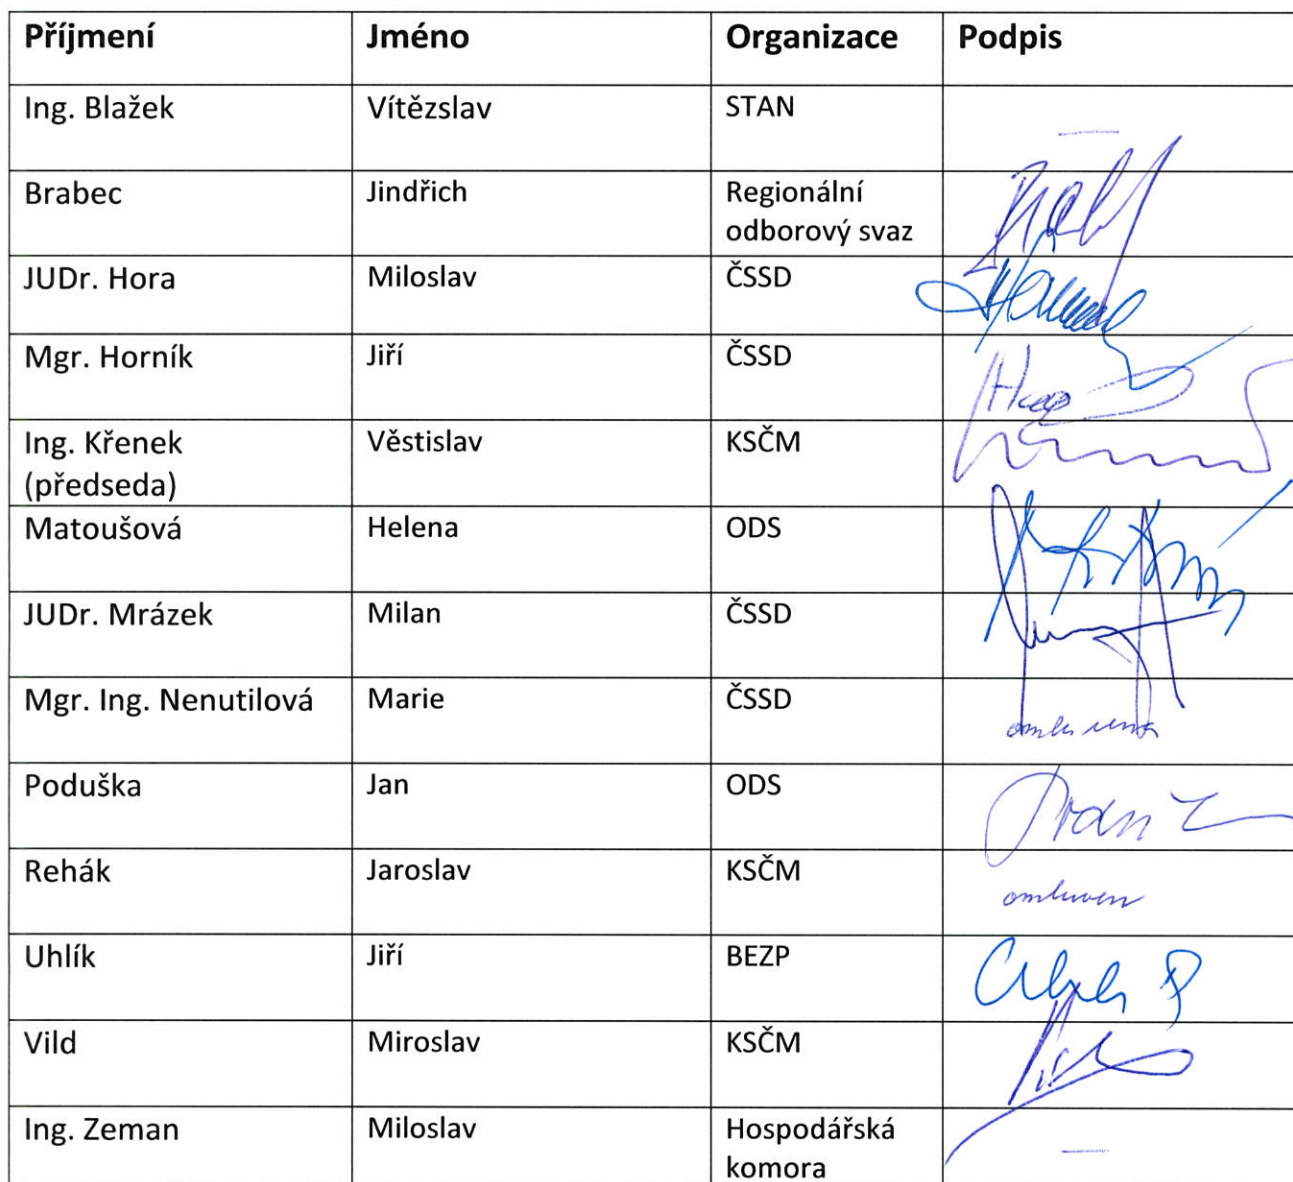 Příjmení Jméno Organizace Podpis
Ing. Blažek Vítězslav STAN —
Brabec Jindřich Regionální
odborový svaz
JUDr. Hora Miloslav ČSSD
Mgr. Horník Jiří ČSSD
Ing. Křenek Věstislav KSČM
(předseda)
Matoušová Helena ODS
JUDr. Mrázek Milan ČSSD
Mgr. Ing. Nenutilová Marie ČSSD omluvena
Poduška Jan ODS
Rehák Jaroslav KSČM omluven
Uhlík Jiří BEZP
Vild Miroslav KSČM
Ing. Zeman Miloslav Hospodářská —
komora